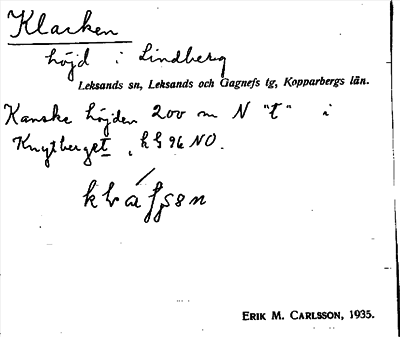 Klacken
höjd i Lindberg
Leksands sn, Leksands och Gagnefs tg, Kopparbergs län.
Kanske höjden 200 m N "t" i
Knytberget, 96 NO.
ERIK M. CARLSSON, 1935.